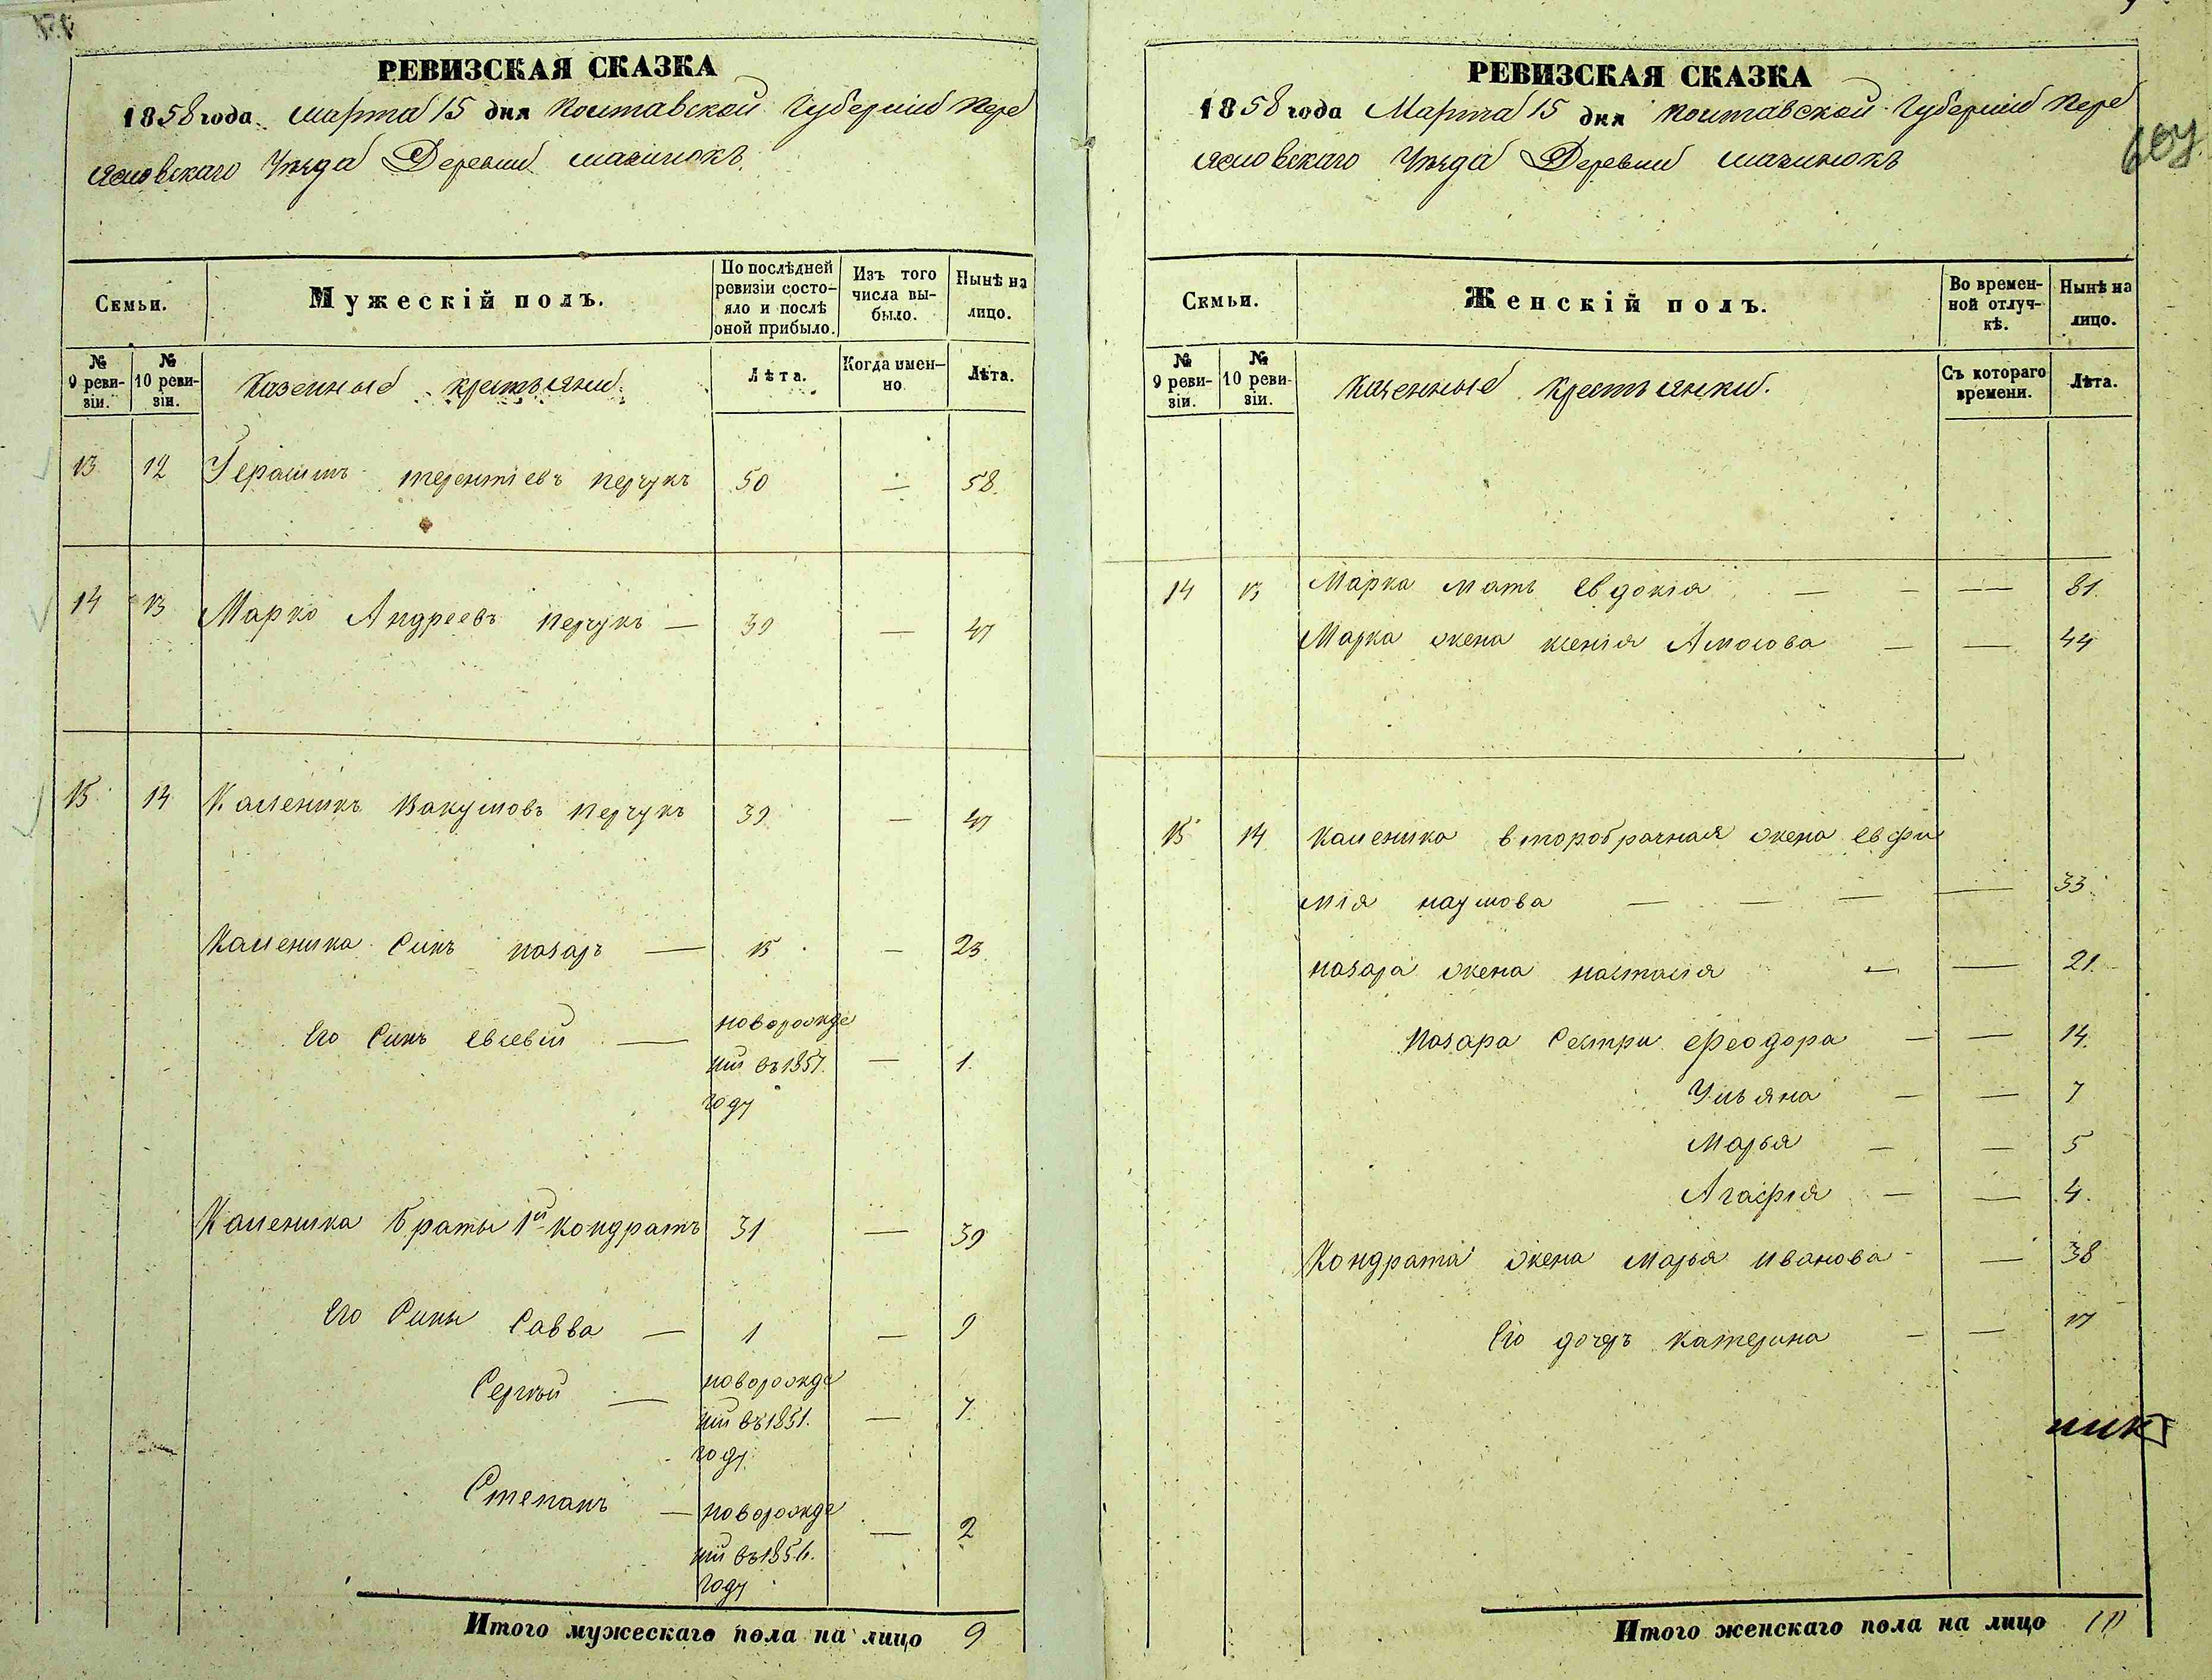 РЕВИЗСКАЯ СКАЗКА
1858 года марта 15 дня Полтавской Губерніи Пере
яславскаго Уѣзда Деревни
Семьи.
Мужескій полъ.
По послѣдней ревизіи состояло и послѣ оной прибыло.
Изъ того числа выбыло.
Нынѣ на лицо.
№ 9 ревизіи.
№ 10 ревизіи.
Казенные крестьяни.
Лѣта.
Когда именно
Лѣта.
13 12 Герасимъ терентіевъ перчукъ 50 — 58.
14 13 Марко Андреевъ перчукъ — 39 — 47
15 14 Каленикъ Вакумовъ перчукъ 39 — 47
Каленика Синъ назаръ — 15 — 23
Его Синъ евсевій — новорожде
ній въ 1857. — 1.
году
Каленика браты 1й кондратъ 31 — 39
Его Сины Савва — 1 — 9
Сергѣй — новорожде
ній въ 1851. — 7.
году
Степанъ — новорожде
ній въ 1856. — 2
году
Итого мужескаго пола на лицо 9
РЕВИЗСКАЯ СКАЗКА
1858 года Марта 15 дня Полтавской Губерніи Пере
яславскаго Уѣзда Деревни
Семьи.
Женскій полъ.
Во временной отлучкѣ.
Нынѣ на лицо.
№ 9 ревизіи.
№ 10 ревизіи.
Казенные крестьянки.
Съ котораго времени.
Лѣта.
14 13 Марка мать евдокія — — — 81.
Марка жена ксенія Амосова — — 44
15 14 Каленика второбрачная жена евфи
мія наумова — — — — 33.
назара жена настасія — — 21.
Назара Сестри феодора — — 14.
Ульяна — — 7
Марья — — 5
Агафія — — 4.
Кондрата жена марья иванова — 38
Его дочерь катерина — — 17
Итого женскаго пола на лицо 10